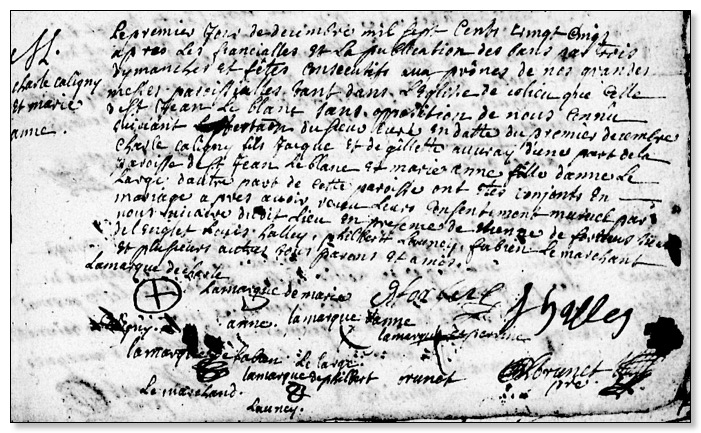 M.
charle caligny
et marie
anne.
Le premier jour de decembre mil sept cents vingt cinq
apres les fiancialles et la publication des bans par trois
dymanches et fêtes consecutifs aux prônes de nos grandes
messes paroissialles tant dans l'Eglise de ce lieu que celle
de St Jean Le blanc sans opposition de nous connû
suivant du sieur curé en datte du premier decembre
charle caligny fils jacque et de gillette auvray d'une part de la
paroisse de st Jean Le blanc et marie anne fille d'anne Le
Large d'autre part de cette paroisse ont étés conjonts en
mariage apres avoir receu leurs consentement mutuel par
nous vicaire dudit Lieu en presence de etienne de
Louis halley, philbert Launey, fabien Le marchant
et plusieurs autres tous parens et amis.
La marque de charle
caligny.
la marque de marie
anne.
la marque d'anne
Le large
la marque de fabien
Le marchand.
la marque de philbert
Launey.
la marque
halley
brunet
brunet
pre.